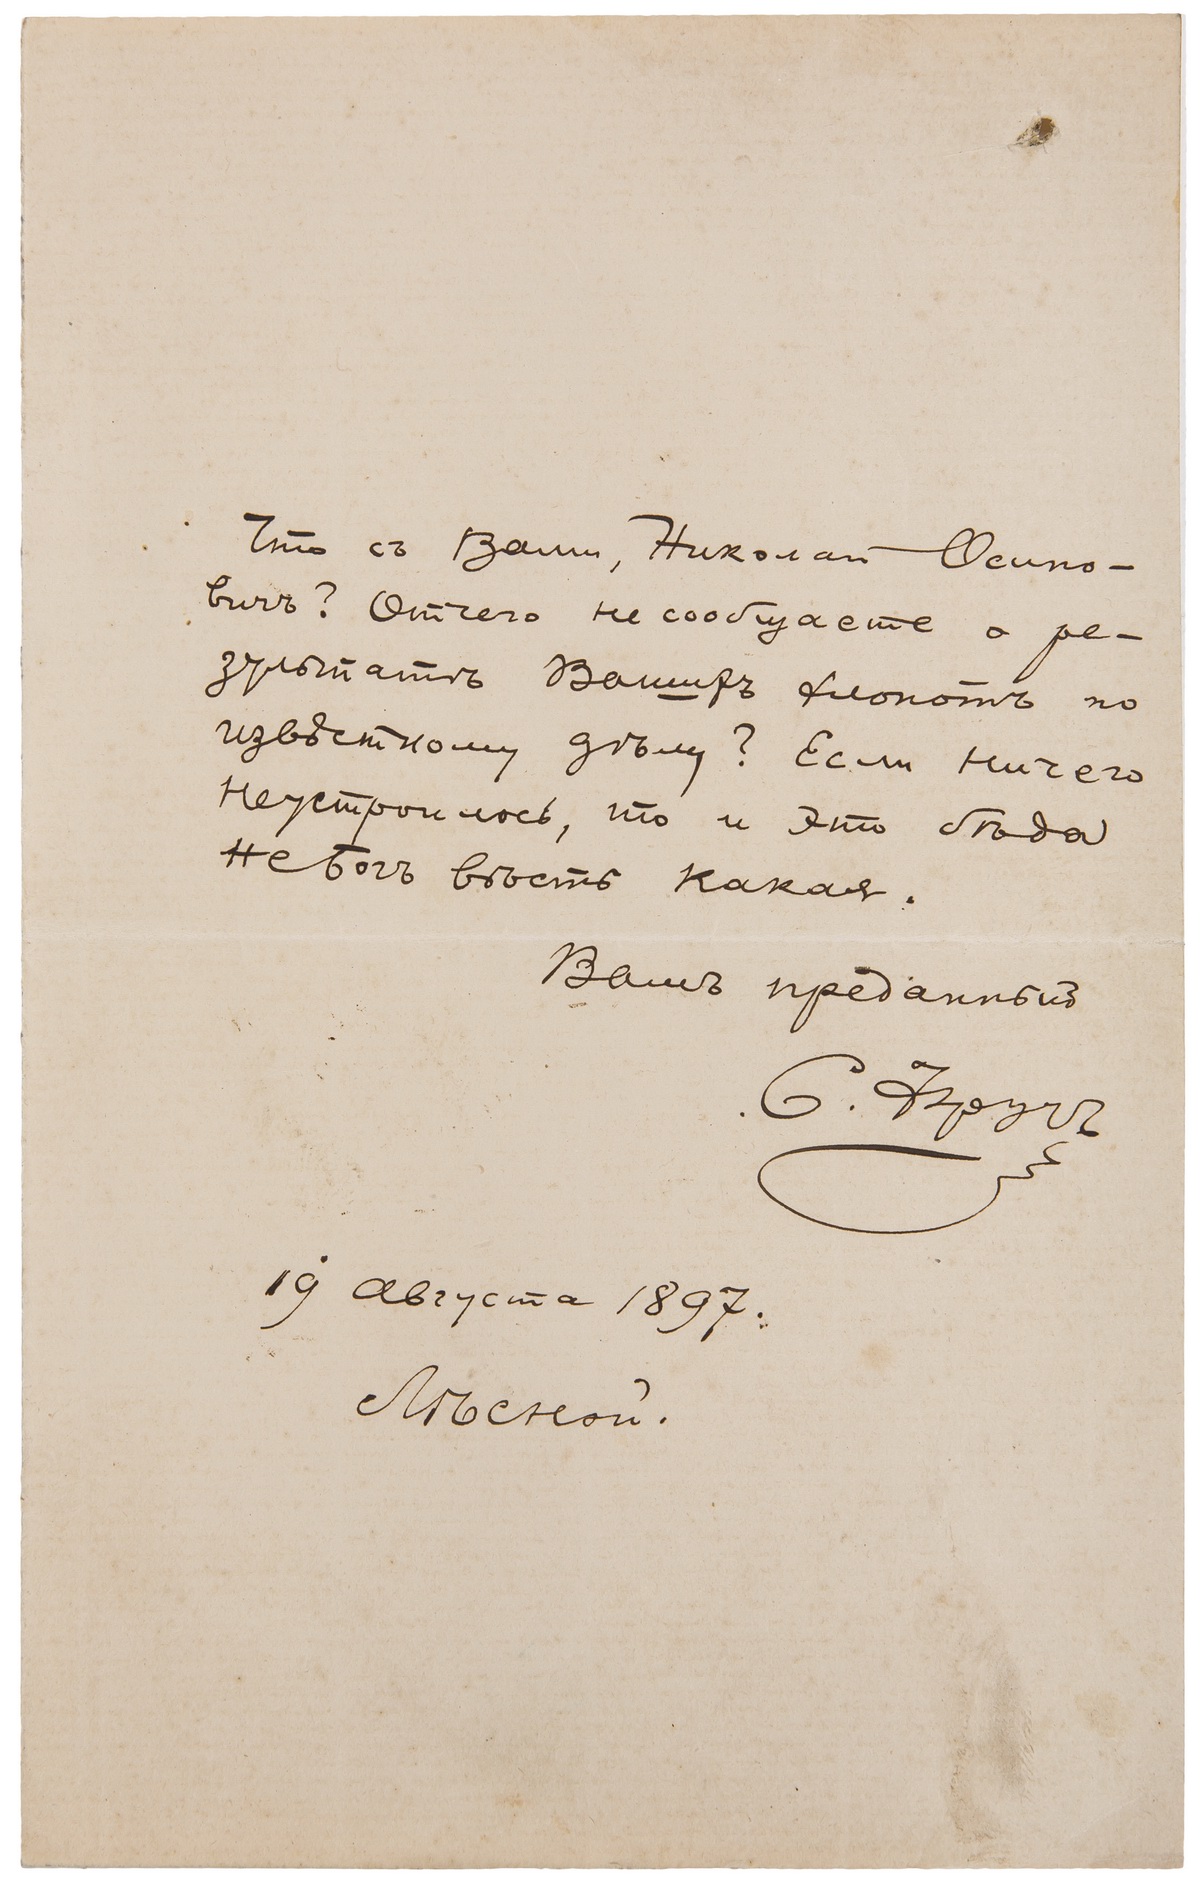 Что съ Вами, Николай Осипо-
вичъ? Отчего не сообщаете о ре-
зультатѣ Вашихъ хлопотъ по
извѣстному дѣлу? Если ничего
неустроилось, то и это бѣда
не Богъ вѣсть какая.
Вашъ преданный
С. Кручъ
19 Августа 1897.
Лѣсной.